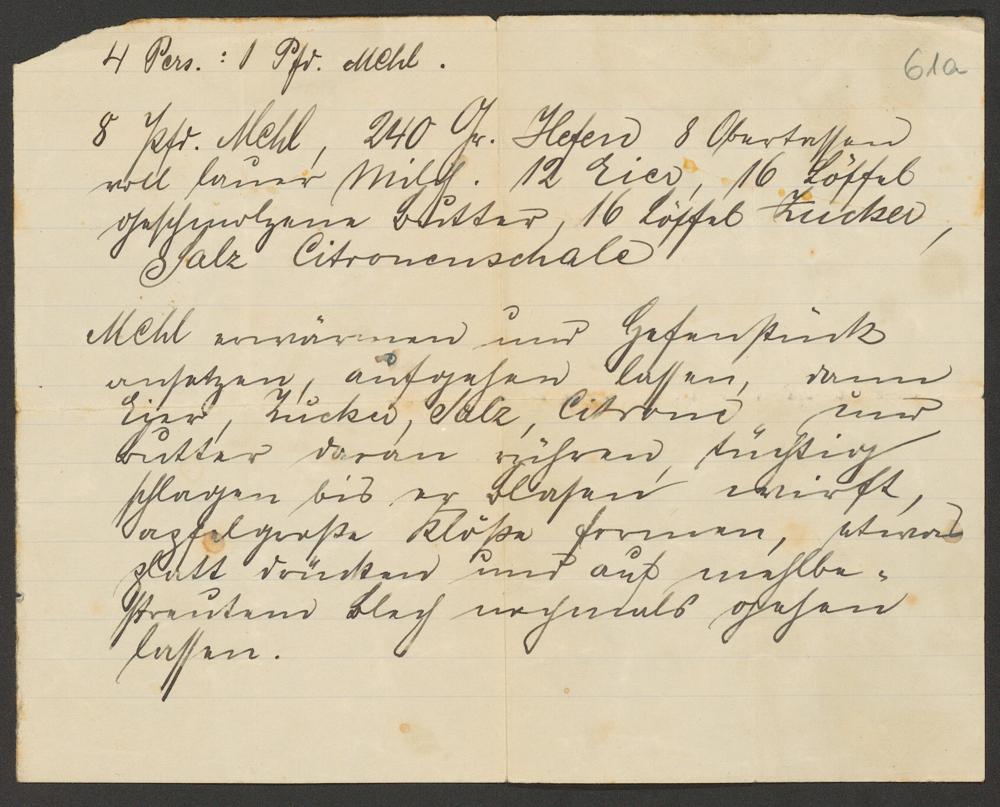 4 Pers. : 1 Pfd. Mehl .
61a
8 Pfd. Mehl, 240 Gr. Hefen 8 Obertassen
voll lauer Milch. 12 Eier, 16 Löffel
geschmolzene Butter, 16 Löffel Zucker,
Salz Citronenschale
Mehl erwärmen und Hefenstück
ansetzen, aufgehen lassen, dann
Eyer, Zucker, Salz, Citrone und
Butter daran rühren, tüchtig
schlagen bis er Blasen wirft,
apfelgroße Klöße formen, etwas
platt drücken und auf mehlbe-
streutem Blech nochmals gehen
lassen.